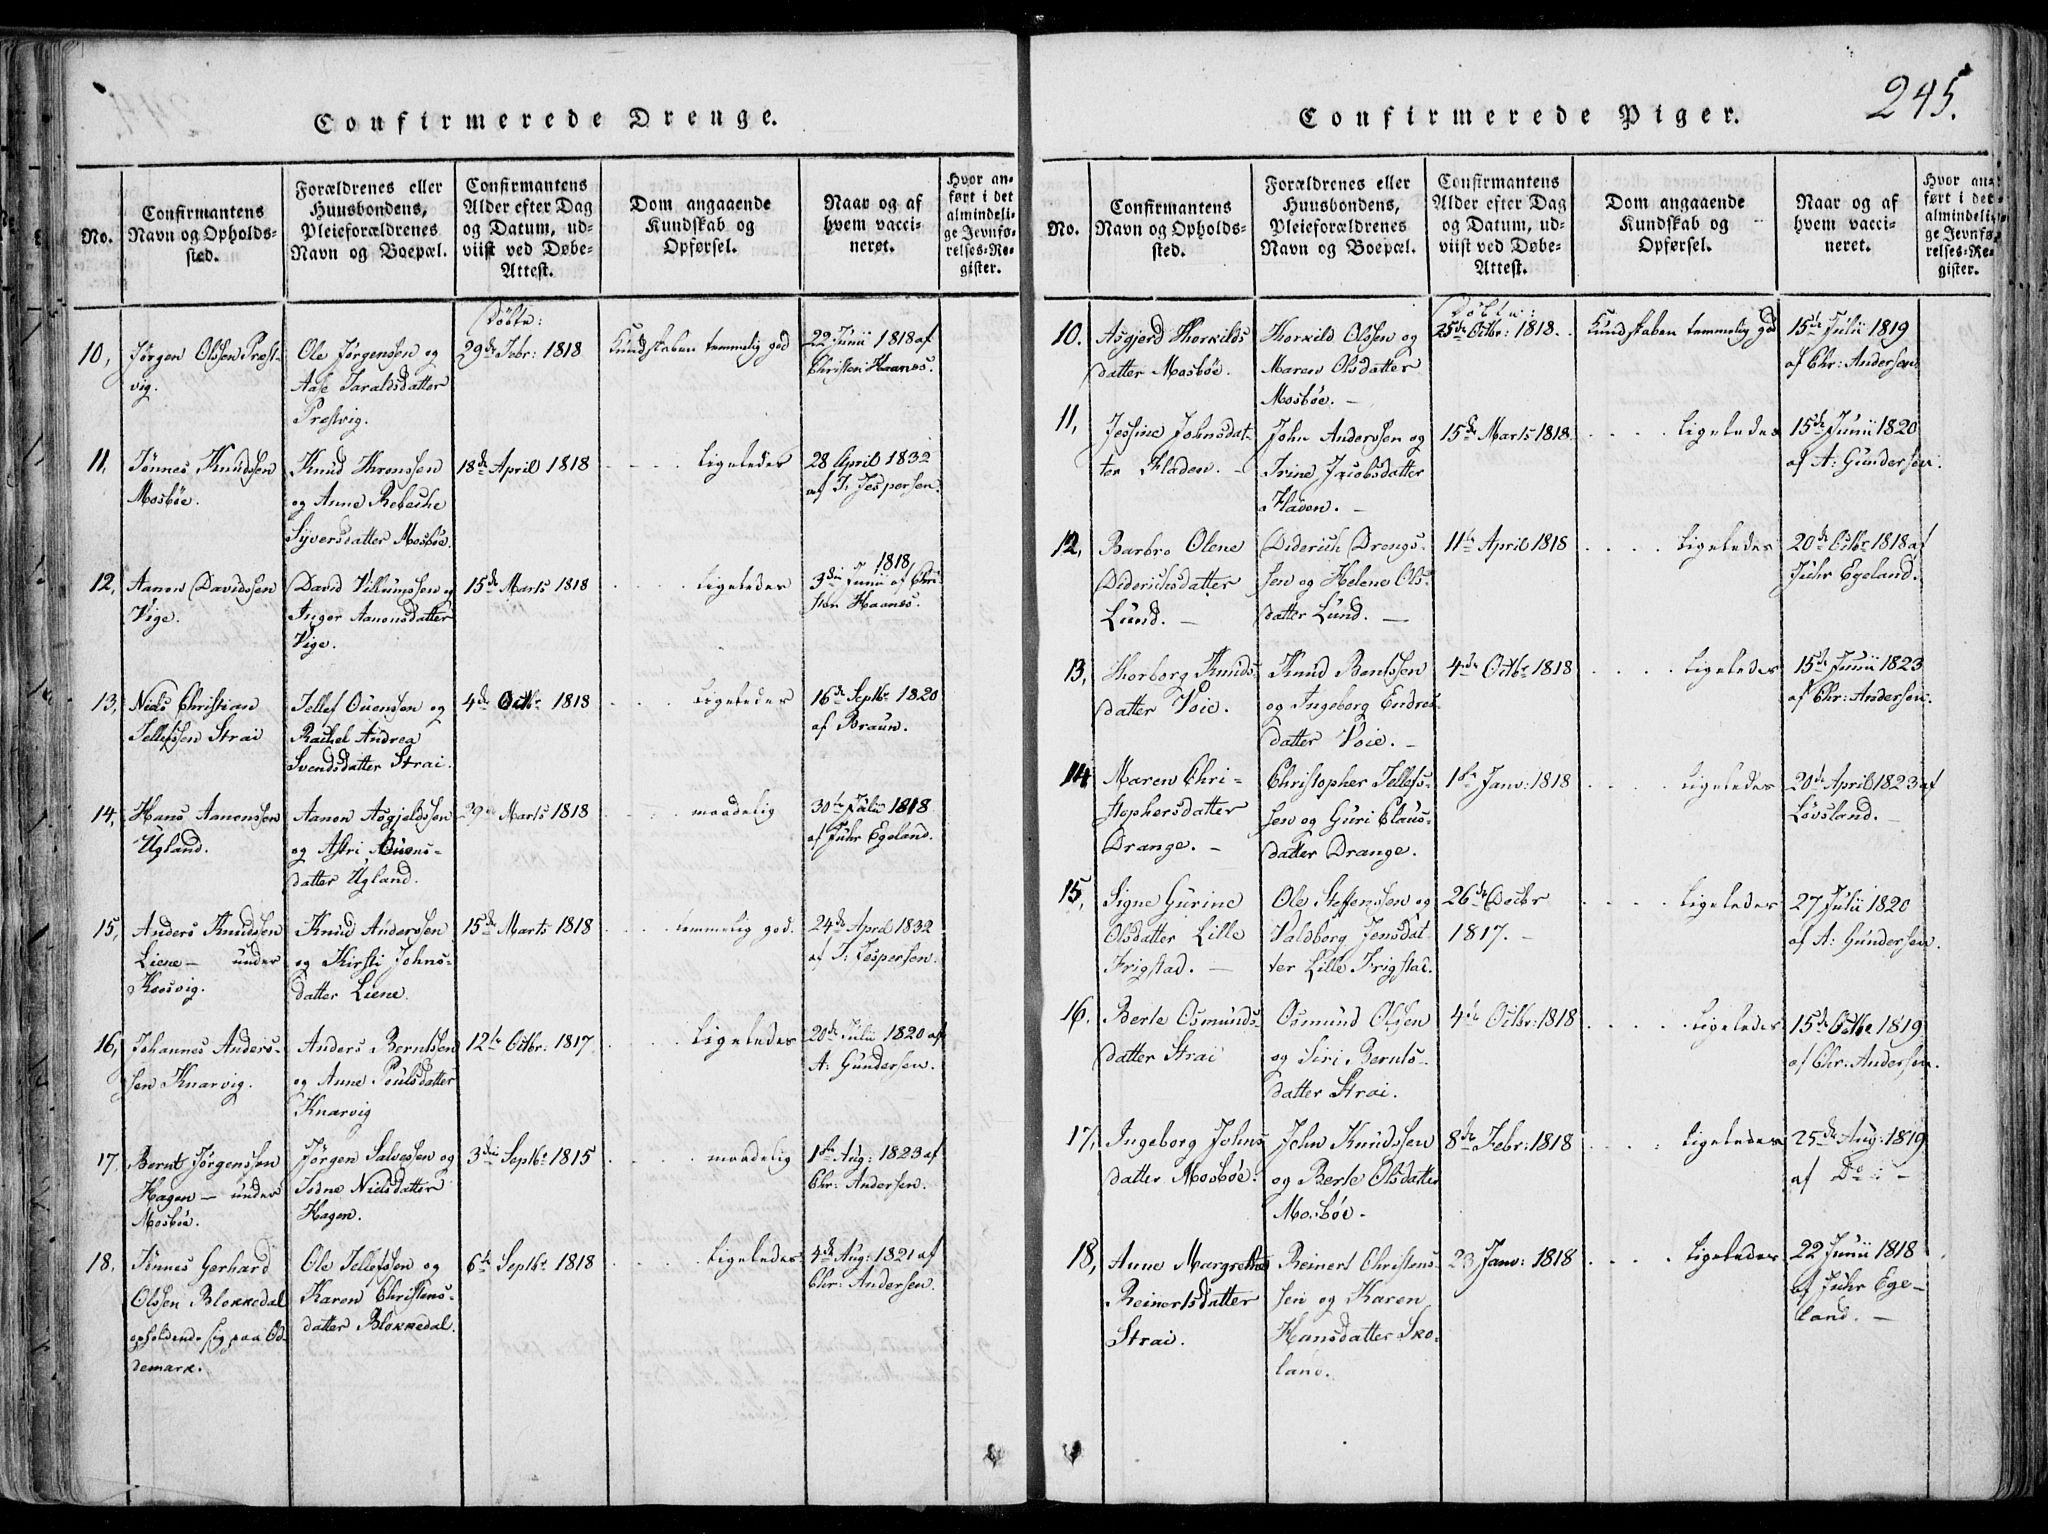 Confirmerede Drenge.
No.
Confirmantens
Navn og Opholds-
sted.
Forældrenes eller
Huusbondens,
Pleieforældrenes
Navn og Boepæl.
Confirmantens
Alder efter Dag
og Datum, ud-
viist ved Døbe-
Attest.
Dom angaaende
Kundskab og
Opførsel.
Naar og af
hvem vacci-
neret.
Hvor an-
ført i det
almindeli-
ge Jevnfø-
relses-Re-
gister.
10,
Jørgen Olssen Præst-
vig.
Ole Jørgenssen og
Aase Taraldsdatter
Prestvig.
Døbte:
29de Febr: 1818
Kundskaben temmelig god
22 Junii 1818 af
Christen Haanes.
11,
Tønnes Knudssen
Mosbøe.
Knud Thronssen
og Anne Rebecke
Syversdatter Mosbøe.
18de April 1818
Ligeledes
28 April 1832
af T. Jespersen.
12,
Aanon Davidssen
Vige.
David Villumssen og
Inger Aanonsdatter
Vige.
15de Marts 1818
Ligeledes
1818,
3die Junii af Chri-
sten Haanes.
13,
Niels Christian
Tellefssen Strai
Tellef Ouensen og
Rachel Andrea
Svendsdatter Strai.
4de Octbr 1818
Ligeledes
16de Septbr 1820
af Braun.
14,
Hans Aanonssen
Ugland.
Aanon Asgjeldssen
og Astri Ouens-
datter Ugland.
29de Marts 1818
maadelig
30te Julii 1818
af Fuhr Egeland.
15,
Anders Knudsen
Liene – under
Koosvig.
Knud Anderssen
og Kirsti Johns-
datter Liene.
15de Marts 1818
temmelig god.
24de April 1832
af T. Jespersen.
16,
Johannes Anders-
sen Knarvig.
Anders Berntssen
og Anne Poulsdatter
Knarvig
12te Octbr: 1817.
Ligeledes
20de Julii 1820 af
A: Gundersen.
17.
Bernt Jørgenssen
Hagen – under
Mosbøe.
Jørgen Salvessen og
Todne Nielsdatter
Hagen.
3die Septbr 1815
maadelig
1ste Aug: 1823 af
Chr: Andersen.
18.
Tønnes Gerhard
Olssen Blokkedal
opholdende sig paa Od-
demark.
Ole Tellefssen og
Karen Christens-
datter Blokkedal.
6te Septbr 1818
Ligeledes
4de Aug: 1821 af
Chr: Andersen.
Confirmerede Piger.
245.
No.
Confirmantens
Navn og Opholds-
sted.
Forældrenes eller
Huusbondens,
Pleieforældrenes
Navn og Boepæl.
Confirmantens
Alder efter Dag
og Datum, ud-
viist ved Døbe-
Attest.
Dom angaaende
Kundskab og
Opførsel.
Naar og af
hvem vacci-
neret.
Hvor an-
ført i det
almindeli-
ge Jevnfø-
relses-Re-
gister.
10.
Asgjerd Thorkilds
datter Mosbøe.
Thorkild Olssen og
Maren Olsdatter
Mosbøe. –
Døbte:
25de Octbr: 1818.
Kundskaben temmelig god
15de Julii 1819
af Chr: Andersen
11,
Jessine Johnsdat-
ter Fladen. –
John Anderssen og
Trine Jacobsdatter
Fladen. –
15de Marts 1818.
Ligeledes
15de Junii 1820
af A: Gundersen.
12,
Barbro Olene
Dideriksdatter
Lund. –
Diderich Drengs-
sen og Helene Ols-
datter Lund. –
11te April 1818
Ligeledes
20de Octbr 1818 af
Fuhr Egeland.
13,
Thorborg Knuds-
datter Voie. –
Knud Bentssen
og Ingeborg Endres-
datter Voie. –
4de Octbr 1818
Ligeledes
15de Junii 1823
af Chr: Andersen.
14
Maren Chri-
stophersdatter
Drange. –
Christopher Tellefs-
sen og Guri Claus-
datter Drange.
1ste Janv: 1818
Ligeledes
20de April 1823 af
Løvsland. –
15,
Signe Gurine
Olsdatter Lille
Frigstad. –
Ole Steffenssen og
Valdborg Jensdat-
ter Lille Frigstad.
26de Decbr
1817. –
Ligeledes
27 Julii 1820
af A: Gundersen.
16.
Berte Osmunds-
datter Strai
Osmund Olssen
og Siri Bernts-
datter Strai.
4de Octbr: 1818
Ligeledes
15de Octbr 1819
af Chr: Andersen.
17,
Ingeborg Johns-
datter Mosbøe.
John Knudssen
og Berte Olsdatter
Mosbøe.
8de Febr: 1818
Ligeledes
25de Aug: 1819
af Do –
18,
Anne Margrethe
Reinertsdatter
Strai.
Reinert Christens-
sen og Karen
Hansdatter Sko-
land.
23 Janv: 1818
Ligeledes
22 Junii 1818
af Fuhr Ege-
land. –